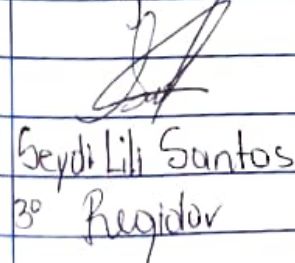 Seydi Lili Santos
3º Regidor